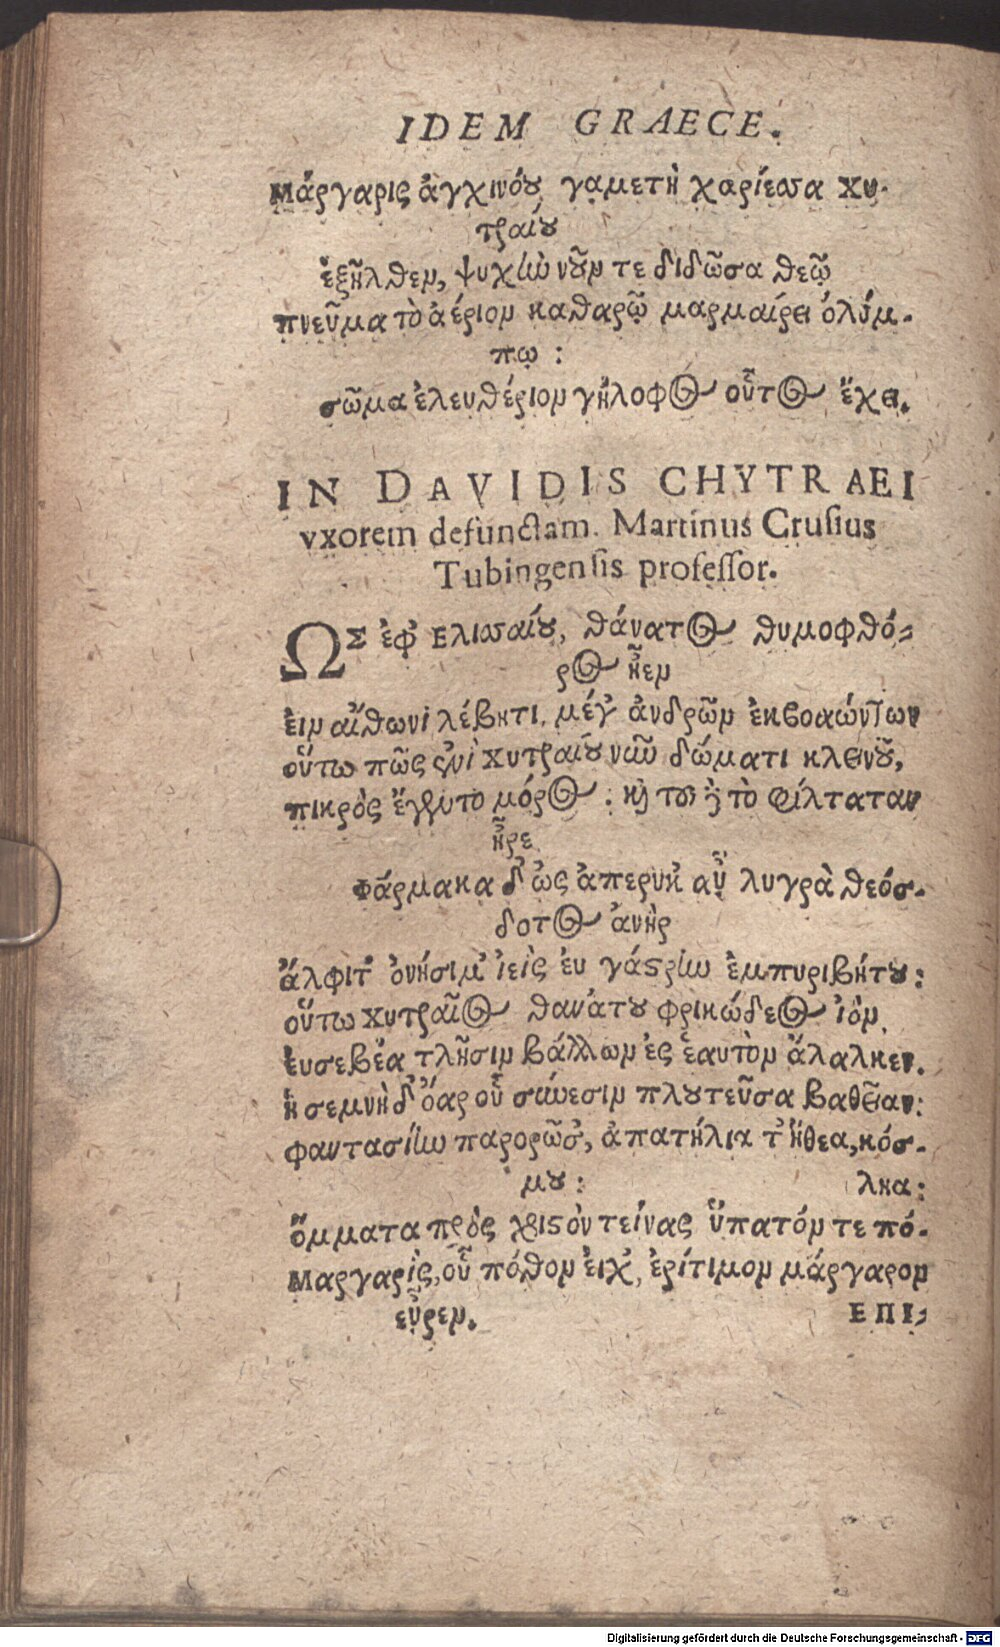 IDEM GRAECE.
Μάργαρις ἀγχινόου γαμετὴ χαρίεσσα Χυ-
τραίου
ἐξῆλθεν, ψυχὴν νοῦν τε διδῶσα θεῷ
πνεῦμα τὸ ἀέριον καθαρῷ μαρμαίρει ὀλύμ-
πῳ :
σῶμα ἐλευθέριον γήλοφος οὗτος ἔχει.
IN DAVIDIS CHYTRAEI
vxorem defunctam. Martinus Crusius
Tubingensis professor.
ΩΣ ἐφ' Ελισσαίου, θάνατος θυμοφθό-
ρος ἦεν
εἰν αἴθωνι λέβητι, μέγ' ἀνδρῶν ἐκβοαώντων
οὕτω πῶς ἐνὶ Χυτραίου νῦν δώματι κλεινοῦ,
πικρὸς ἔγχυτο μόρος : καὶ τὸ φίλταταν
ἦρε
Φάρμακα δ' ὡς ἀπερυκ' αὖ λυγρὰ θεόσ-
δοτος ἀνὴρ
ἄλφιτ' ὀνήσιμ' ἱεὶς ἐυ γάστρην ἐμπυριβήτου :
οὕτω Χυτραῖος θανάτου φρικώδεος ἰὸν
ἐυσεβέα τλῆσιν βάλλων ἐς ἑαυτὸν ἄλαλκεν.
ἡ σεμνὴ δ' ὄαρ οὗ σύνεσιν πλουτεῦσα βαθεῖαν:
φαντασίην παρορῶσ', ἀπατήλια τ' ἤθεα, κόσ-
μου : λκα:
ὄμματα πρὸς χριστὸν τείνας ὕπατόν τε πό-
Μαργαρὶς, οὗ πόθον εἰχ', ἐρίτιμον μάργαρον
εὗρεν. ΕΠΙ-
Digitalisierung gefördert durch die Deutsche Forschungsgemeinschaft - DFG